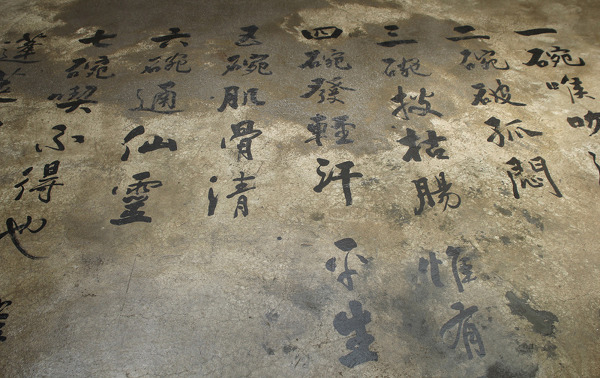 一碗喉吻
二碗破孤悶
三碗搜枯腸 惟有
四碗發輕汗 平生
五碗肌骨清
六碗通仙靈
七碗喫不得也
蓬